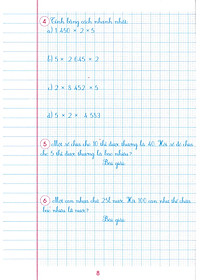 4 Tính bằng cách nhanh nhất:
a) 1 450 × 2 × 5
b) 5 × 2 645 × 2
c) 2 × 8 452 × 5
d) 5 × 2 × 4 553
5 Một số chia cho 10 thì được thương là 40. Hỏi số đó chia
cho 5 thì được thương là bao nhiêu?
Bài giải
6 Một can nhựa chứ 25l nước. Hỏi 100 can như thế chứa
bao nhiêu lít nước?
Bài giải
8